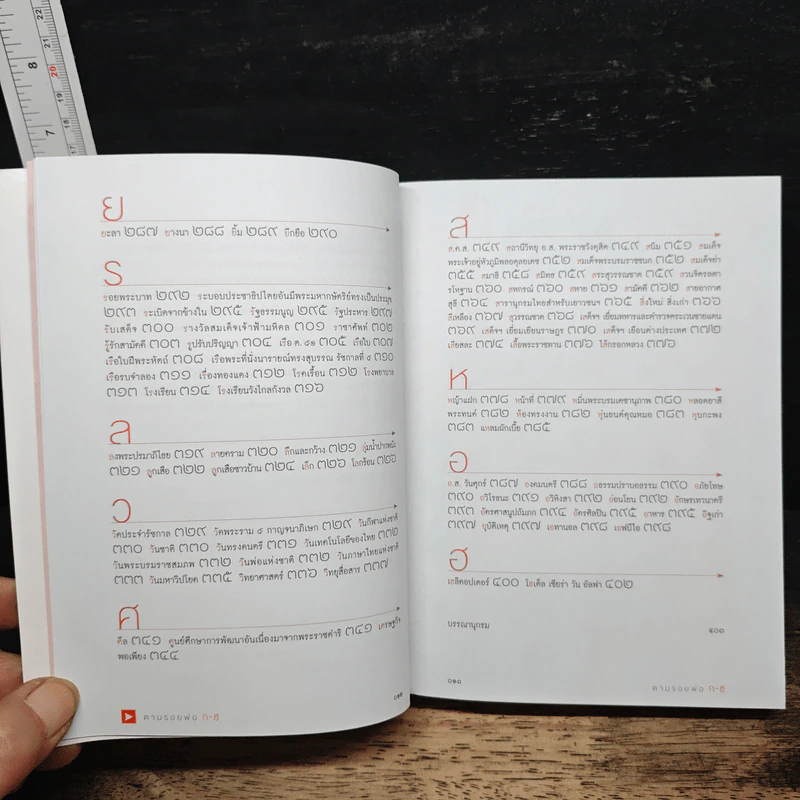 ย
ยะลา ๒๘๗ ยางนา ๒๘๘ ยิ้ม ๒๘๙ ยึกยือ ๒๙๐
ร
รอยพระบาท ๒๙๒ ระบอบประชาธิปไตยอันมีพระมหากษัตริย์ทรงเป็นประมุข
๒๙๓ ระเบิดจากข้างใน ๒๙๕ รัฐธรรมนูญ ๒๙๕ รัฐประหาร ๒๙๗
รับเสด็จ ๓๐๐ รางวัลสมเด็จเจ้าฟ้ามหิดล ๓๐๑ ราชาศัพท์ ๓๐๒
รู้รักสามัคคี ๓๐๓ รูปรับปริญญา ๓๐๔ เรือ ต. ๙๑ ๓๐๕ เรือใบ ๓๐๗
เรือใบฝีพระหัตถ์ ๓๐๘ เรือพระที่นั่งนารายณ์ทรงสุบรรณ รัชกาลที่ ๙ ๓๑๐
เรือรบจำลอง ๓๑๑ เรื่องทองแดง ๓๑๒ โรคเรื้อน ๓๑๒ โรงพยาบาล
๓๑๓ โรงเรียน ๓๑๔ โรงเรียนวังไกลกังวล ๓๑๖
ล
ลงพระปรมาภิไธย ๓๑๙ ลายคราม ๓๒๐ ลึกและกว้าง ๓๒๑ ลุ่มน้ำปากพนัง
๓๒๑ ลูกเสือ ๓๒๒ ลูกเสือชาวบ้าน ๓๒๔ เล็ก ๓๒๖ โลกร้อน ๓๒๖
ว
วัดประจำรัชกาล ๓๒๙ วัดพระราม ๙ กาญจนาภิเษก ๓๒๙ วันกีฬาแห่งชาติ
๓๓๐ วันชาติ ๓๓๐ วันทรงดนตรี ๓๓๑ วันเทคโนโลยีของไทย ๓๓๒
วันพระบรมราชสมภพ ๓๓๒ วันพ่อแห่งชาติ ๓๓๒ วันภาษาไทยแห่งชาติ
๓๓๓ วันมหาวิปโยค ๓๓๕ วิทยาศาสตร์ ๓๓๖ วิทยุสื่อสาร ๓๓๗
ศ
ศีล ๓๔๑ ศูนย์ศึกษาการพัฒนาอันเนื่องมาจากพระราชดำริ ๓๔๑ เศรษฐกิจ
พอเพียง ๓๔๔
๐๑๒
ตามรอยพ่อ ก-ฮ
ส
ส.ค.ส. ๓๔๙ สถานีวิทยุ อ.ส. พระราชวังดุสิต ๓๔๙ สนิม ๓๕๑ สมเด็จ
พระเจ้าอยู่หัวภูมิพลอดุลยเดช ๓๕๒ สมเด็จพระบรมราชชนก ๓๕๒ สมเด็จย่า
๓๕๕ สมาธิ ๓๕๘ สมิทธ ๓๕๙ สระสุวรรณชาด ๓๕๙ สวนจิตรลดา
รโหฐาน ๓๖๐ สหกรณ์ ๓๖๐ สหาย ๓๖๑ สามัคคี ๓๖๒ สายอากาศ
สุธี ๓๖๔ สารานุกรมไทยสำหรับเยาวชนฯ ๓๖๕ สิ่งใหม่ สิ่งเก่า ๓๖๖
สีเหลือง ๓๖๗ สุวรรณชาด ๓๖๘ เสด็จฯ เยี่ยมทหารและตำรวจตระเวนชายแดน
๓๖๙ เสด็จฯ เยี่ยมเยียนราษฎร ๓๗๐ เสด็จฯ เยือนต่างประเทศ ๓๗๒
เสียสละ ๓๗๔ เสื้อพระราชทาน ๓๗๖ โสักรอกหลวง ๓๗๖
ห
หญ้าแฝก ๓๗๘ หน้าที่ ๓๗๙ หมิ่นพระบรมเดชานุภาพ ๓๘๐ หลอดยาสี
พระทนต์ ๓๘๒ ห้องทรงงาน ๓๘๒ หุ่นยนต์คุณหมอ ๓๘๓ หุบกะพง
๓๘๓ แหลมผักเบี้ย ๓๘๕
อ
อ.ส. วันศุกร์ ๓๘๗ องคมนตรี ๓๘๘ อธรรมปราบอธรรม ๓๙๐ อภัยโทษ
๓๙๐ อวิโรธนะ ๓๙๑ อวิหิงสา ๓๙๒ อ่อนโยน ๓๙๒ อักษรเทวนาครี
๓๙๓ อัครศาสนูปถัมภก ๓๙๔ อัครศิลปิน ๓๙๕ อาหาร ๓๙๕ อิฐเก่า
๓๙๗ อุบัติเหตุ ๓๙๗ เอทานอล ๓๙๘ เอฟบีไอ ๓๙๘
ฮ
เฮลิคอปเตอร์ ๔๐๐ โฮเต็ล เซียร่า วัน อัลฟา ๔๐๒
บรรณานุกรม
๐๑๓
ตามรอยพ่อ ก-ฮ